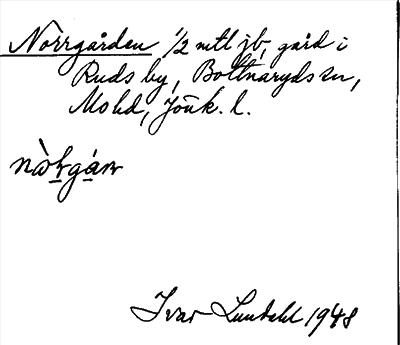 Norrgården 1/2 mtl jb, gård i
Ruds by, Bottnaryds sn,
Mo hd, Jönk. l.
Ivar Lundahl 1948